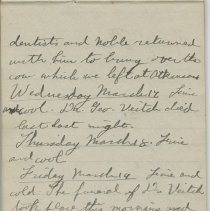 dentists and Noble returned
with him to bring over the
cow which we left at Atkinsons
Wednesday March 17. Fine
and cool. Dr. Geo. Veitch died
last night.
Thursday March 18. Fine
and cool
Friday March 19 Fine and
cold. The funeral of Dr Veitch
took place this morning and